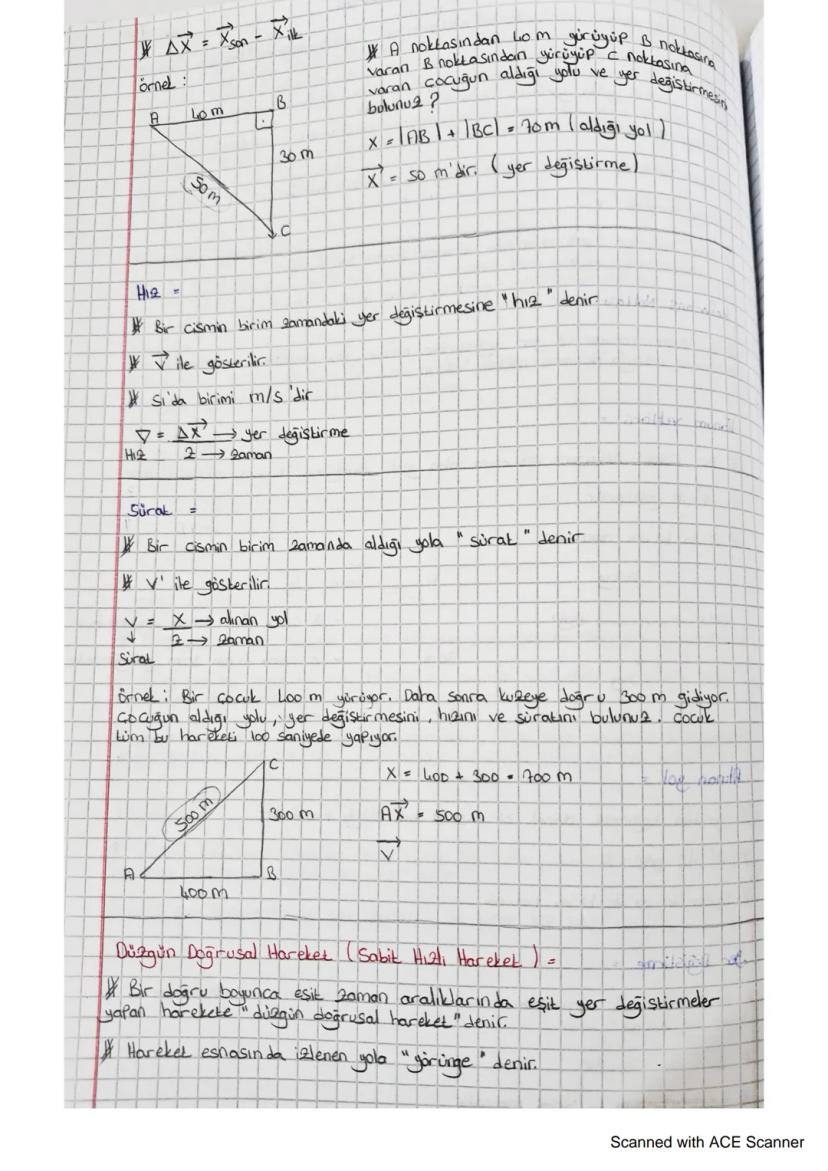 * Δx⃗ = x⃗son - x⃗ilk
örnek :
A 40 m B
30 m
50 m
C
* A noktasından 40 m yürüyüp B noktasına
varan B noktasından yürüyüp C noktasına
varan çocuğun aldığı yolu ve yer değiştirmesini
bulunuz ?
X = |AB| + |BC| = 70m (aldığı yol)
x⃗ = 50 m'dir. (yer değiştirme)
Hız =
* Bir cismin birim zamandaki yer değiştirmesine "hız" denir.
* V⃗ ile gösterilir.
* SI'da birimi m/s 'dir
V = Δx⃗ → yer değiştirme
Hız 2 → zaman
Sürat =
* Bir cismin birim zamanda aldığı yola "sürat" denir
* V' ile gösterilir.
V = X → alınan yol
↓ 2 → zaman
Sürat
örnek : Bir çocuk 400 m yürüyor. Daha sonra kuzeye doğru 300 m gidiyor.
Çocuğun aldığı yolu, yer değiştirmesini, hızını ve süratini bulunuz. Çocuk
tüm bu hareketi 100 saniyede yapıyor.
C
500 m
300 m
A B
400 m
X = 400 + 300 = 700 m
Δx⃗ = 500 m
V⃗
Düzgün Doğrusal Hareket (Sabit Hızlı Hareket) =
* Bir doğru boyunca eşit zaman aralıklarında eşit yer değiştirmeler
yapan harekete "düzgün doğrusal hareket" denir.
* Hareket esnasında izlenen yola "yörünge" denir.
Scanned with ACE Scanner